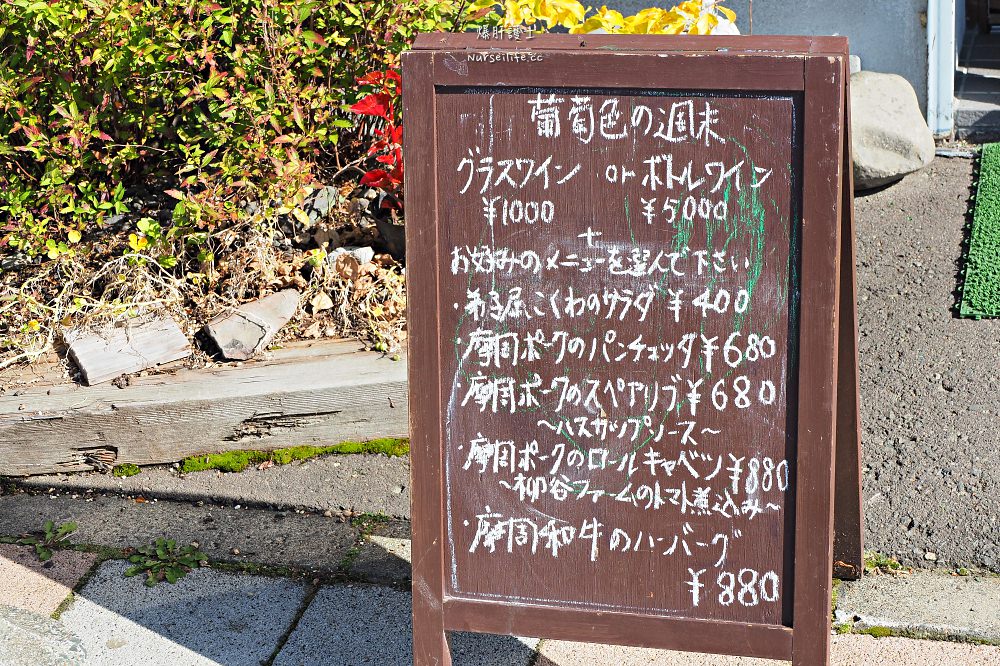 爆肝護士
Nurseilife.cc
葡萄色の週末
グラスワイン or ボトルワイン
¥1000 ¥5000
+
お好みのメニューを選んで下さい
・弟子屈こくわのサラダ ¥400
・摩周ポークのパンチェッタ ¥680
・摩周ポークのスペアリブ ¥680
～ハスカップソース～
・摩周ポークのロールキャベツ ¥880
～柳谷ファームのトマト煮込み～
・摩周和牛のハンバーグ
¥880